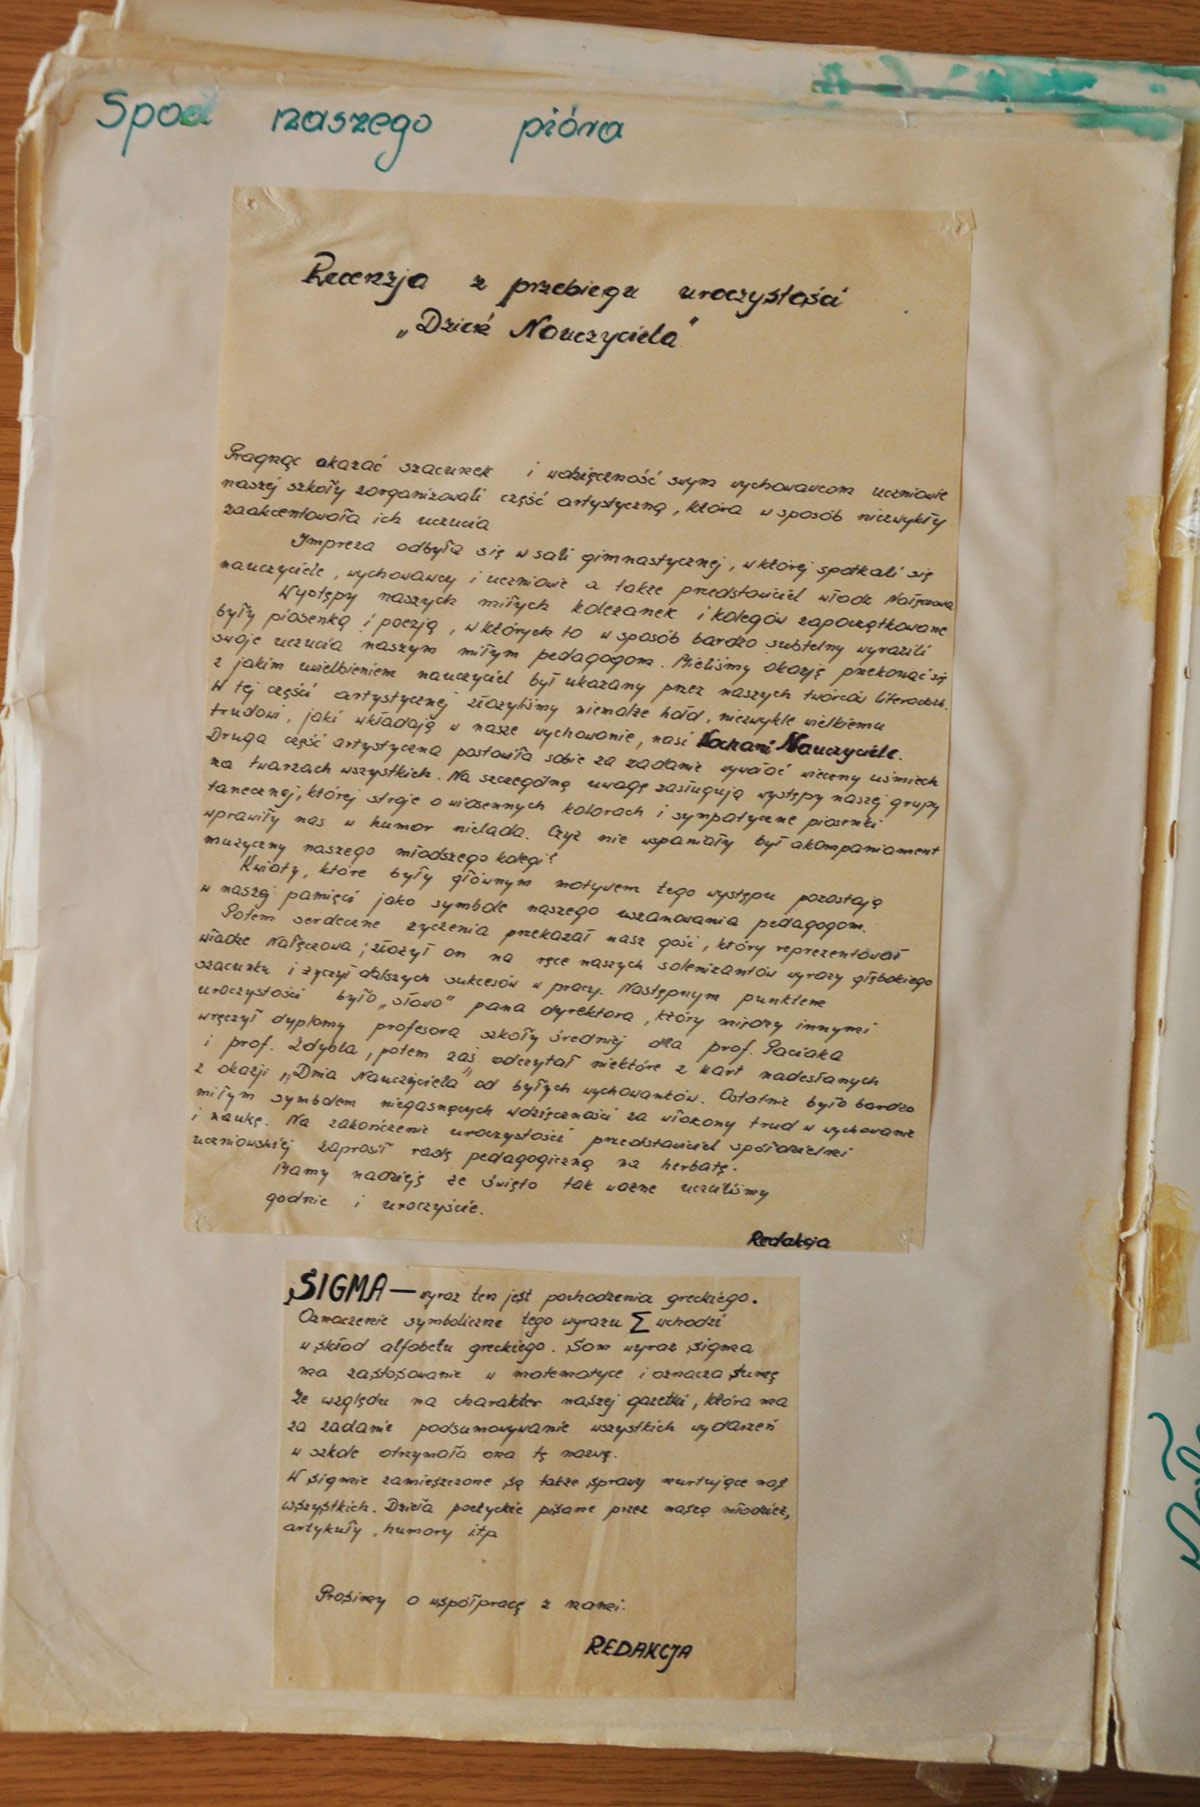 Spod naszego pióra
Recenzja z przebiegu uroczystości
„Dzień Nauczyciela”
Pragnąc okazać szacunek i wdzięczność swym wychowawcom uczniowie
naszej szkoły zorganizowali część artystyczną, która w sposób niezwykły
zaakcentowała ich uczucia
Impreza odbyła się w sali gimnastycznej, w której spotkali się
nauczyciele, wychowawcy i uczniowie a także przedstawiciel władz Nałęczowa
Występy naszych miłych koleżanek i kolegów zapoczątkowane
były piosenką i poezją, w których to w sposób bardzo subtelny wyrazili
swoje uczucia naszym miłym pedagogom. Mieliśmy okazję przekonać się
z jakim uwielbieniem nauczyciel był ukazany przez naszych twórców literackich.
W tej części artystycznej złożyliśmy niemalże hołd, niezwykle wielkiemu
trudowi, jaki wkładają w nasze wychowanie, nasi Kochani Nauczyciele.
Druga część artystyczna postawiła sobie za zadanie wywołać wieczny uśmiech
na twarzach wszystkich. Na szczególną uwagę zasługują występy naszej grupy
tanecznej, której stroje o wiosennych kolorach i sympatyczne piosenki
wprawiły nas w humor nielada. Czyż nie wspaniały był akompaniament
muzyczny naszego młodszego kolegi?
Kwiaty, które były głównym motywem tego występu pozostają
w naszej pamięci jako symbole naszego uszanowania pedagogom.
Potem serdeczne życzenia przekazał nasz gość, który reprezentował
władze Nałęczowa; złożył on na ręce naszych solenizantów wyrazy głębokiego
szacunku i życzył dalszych sukcesów w pracy. Następnym punktem
uroczystości było „słowo” pana dyrektora, który między innymi
wręczył dyplomy profesora szkoły średniej dla prof. Paciaka
i prof. Zdybla, potem zaś odczytał niektóre z kart nadesłanych
z okazji „Dnia Nauczyciela” od byłych wychowanków. Ostatnie było bardzo
miłym symbolem niegasnących wdzięczności za włożony trud w wychowanie
i naukę. Na zakończenie uroczystości przedstawiciel spółdzielni
uczniowskiej zaprosił radę pedagogiczną na herbatę.
Mamy nadzieję że święto tak ważne uczciliśmy
godnie i uroczyście.
Redakcja
SIGMA – wyraz ten jest pochodzenia greckiego.
Oznaczenie symboliczne tego wyrazu Σ wchodzi
w skład alfabetu greckiego. Sam wyraz sigma
ma zastosowanie w matematyce i oznacza sumę
Ze względu na charakter naszej gazetki, która ma
za zadanie podsumowywanie wszystkich wydarzeń
w szkole otrzymała ona tę nazwę.
W sigmie zamieszczone są także sprawy nurtujące nas
wszystkich. Dzieła poetyckie pisane przez naszą młodzież,
artykuły, humory itp
Prosimy o współpracę z nami.
REDAKCJA